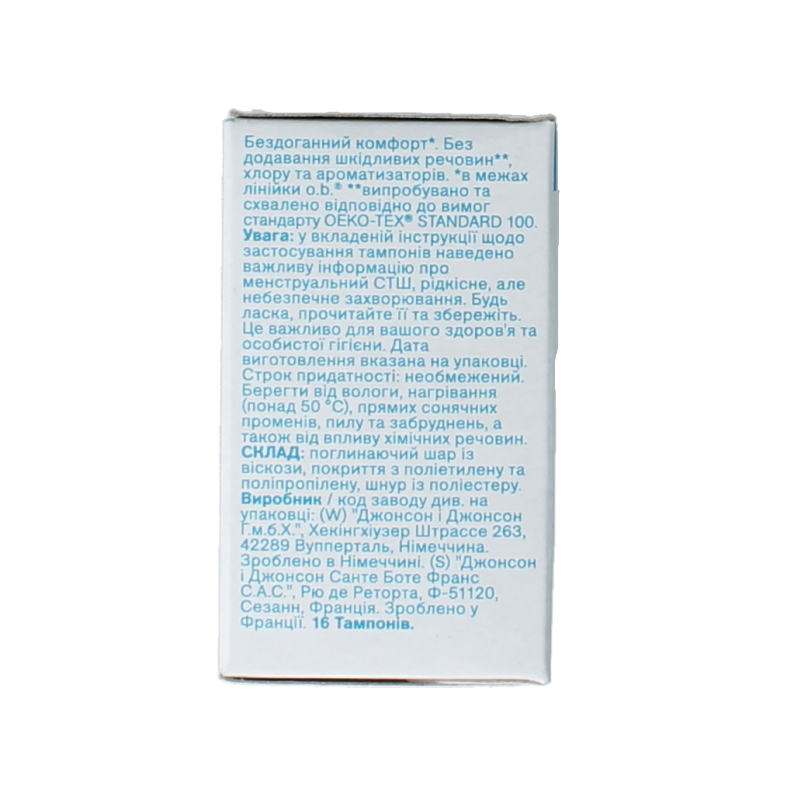 Бездоганний комфорт*. Без
додавання шкідливих речовин**,
хлору та ароматизаторів. *в межах
лінійки o.b.® **випробувано та
схвалено відповідно до вимог
стандарту OEKO-TEX® STANDARD 100.
Увага: у вкладеній інструкції щодо
застосування тампонів наведено
важливу інформацію про
менструальний СТШ, рідкісне, але
небезпечне захворювання. Будь
ласка, прочитайте її та збережіть.
Це важливо для вашого здоров'я та
особистої гігієни. Дата
виготовлення вказана на упаковці.
Строк придатності: необмежений.
Берегти від вологи, нагрівання
(понад 50 °C), прямих сонячних
променів, пилу та забруднень, а
також від впливу хімічних речовин.
СКЛАД: поглинаючий шар із
віскози, покриття з поліетилену та
поліпропілену, шнур із поліестеру.
Виробник / код заводу див. на
упаковці: (W) "Джонсон і Джонсон
Г.м.б.Х.", Хекінгхіузер Штрассе 263,
42289 Вупперталь, Німеччина.
Зроблено в Німеччині. (S) "Джонсон
і Джонсон Санте Боте Франс
С.А.С.", Рю де Реторта, Ф-51120,
Сезанн, Франція. Зроблено у
Франції. 16 Тампонів.